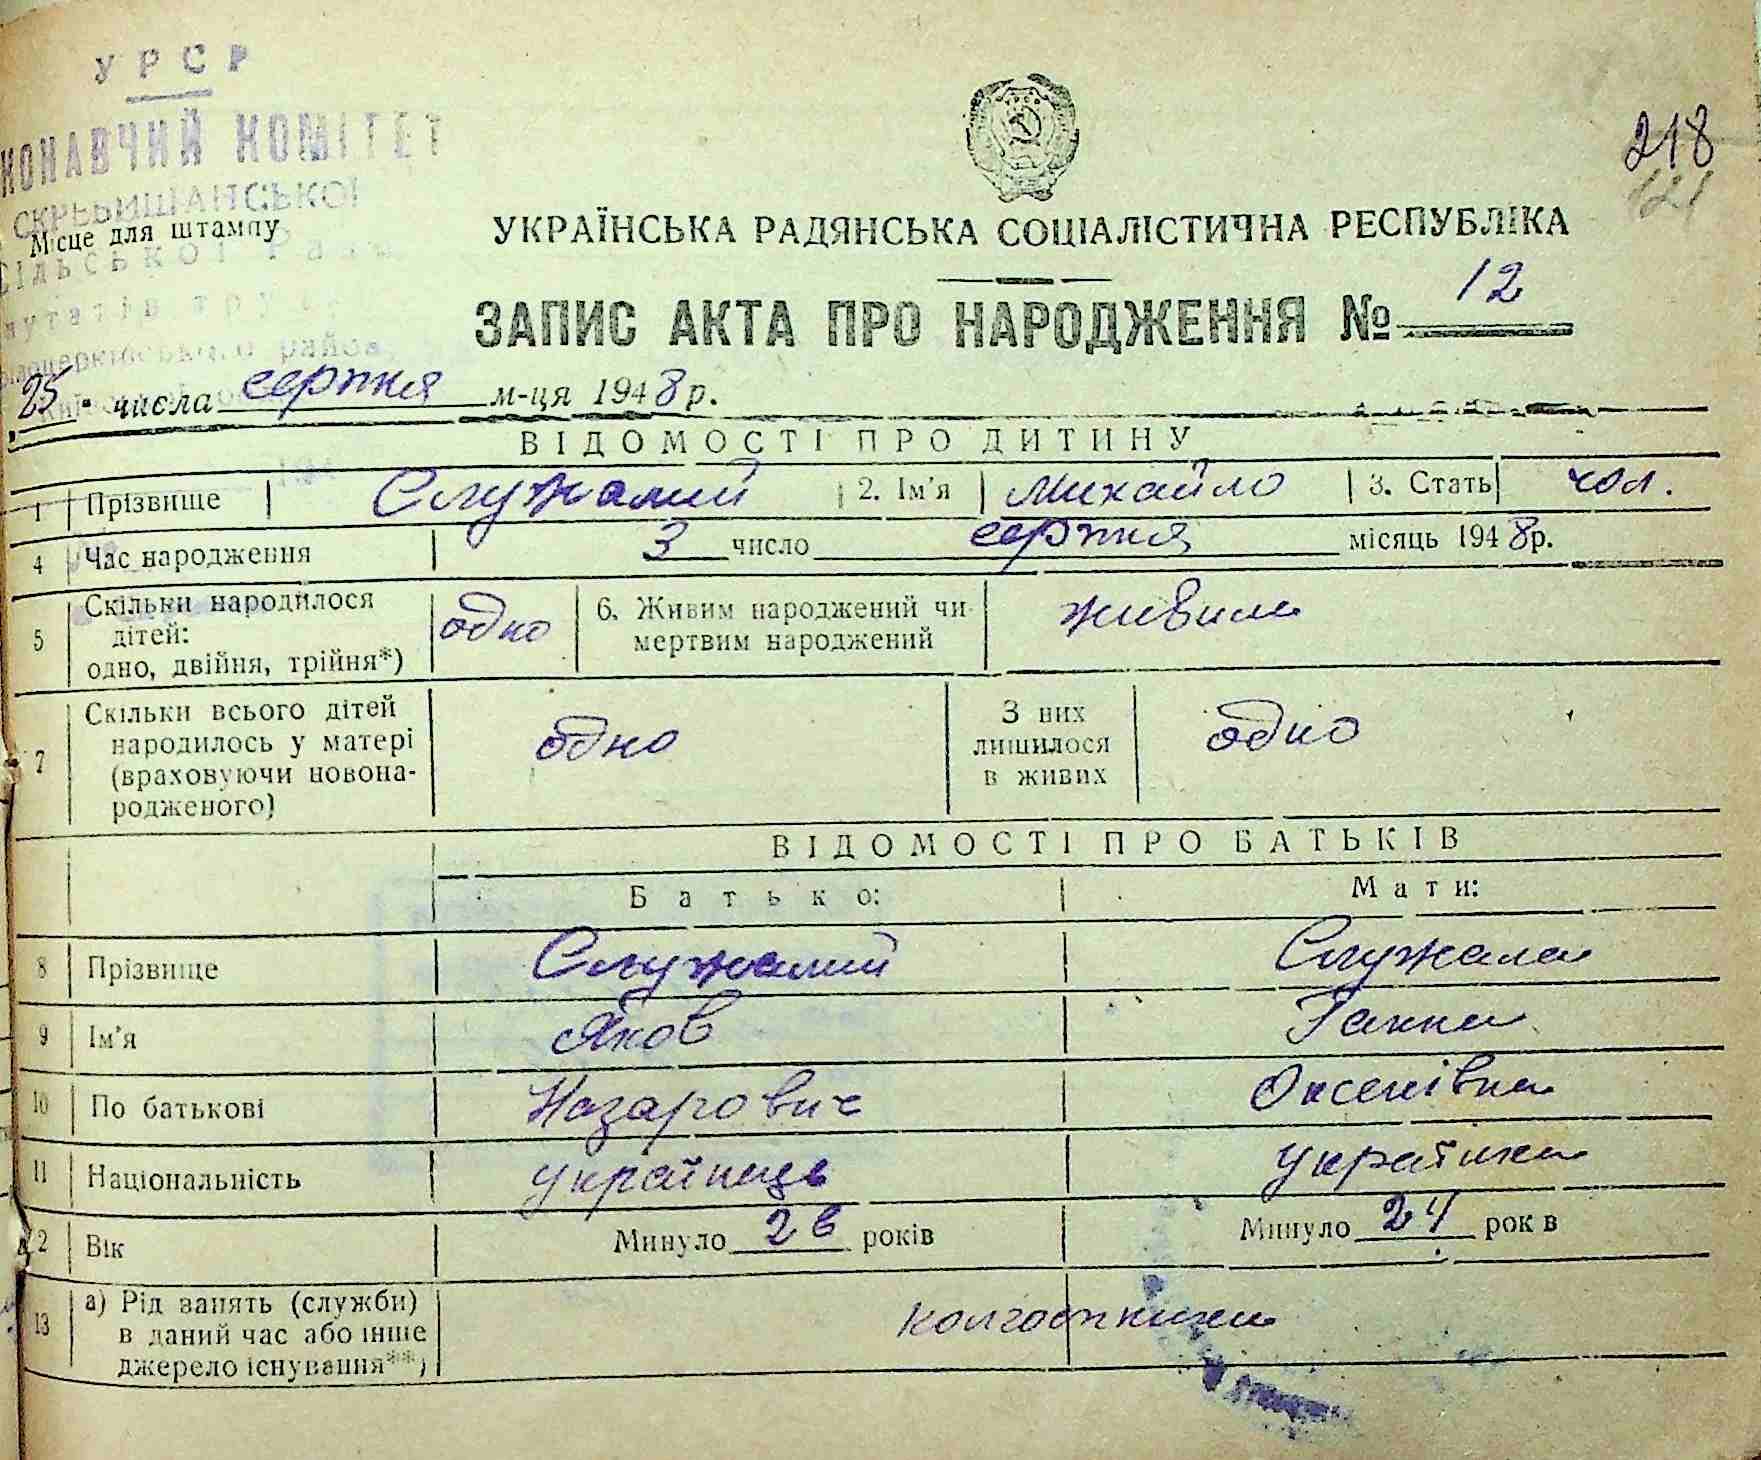 УРСР
КОНАВЧИЙ КОМІТЕТ
СКРЕБИШАНСЬКОЇ
Місце для штампу
СІЛЬСЬКОЇ Ради
218
121
УКРАЇНСЬКА РАДЯНСЬКА СОЦІАЛІСТИЧНА РЕСПУБЛІКА
ЗАПИС АКТА ПРО НАРОДЖЕННЯ № 12
25 числа серпня м-ця 1948 р.
ВІДОМОСТІ ПРО ДИТИНУ
1 Прізвище Служалий 2. Ім'я Михайло 3. Стать чол.
4 Час народження 3 число серпня місяць 1948 р.
5 Скільки народилося дітей: одно, двійня, трійня*) одно 6. Живим народжений чи мертвим народжений живим
7 Скільки всього дітей народилось у матері (враховуючи новона-родженого) одно З них лишилося в живих одно
ВІДОМОСТІ ПРО БАТЬКІВ
Батько: Мати:
8 Прізвище Служалий Служала
9 Ім'я Яков Ганна
10 По батькові Назарович Оксенівна
11 Національність українець українка
12 Вік Минуло 26 років Минуло 24 рок в
13 а) Рід занять (служби) в даний час або інше джерело існування**) колгоспники